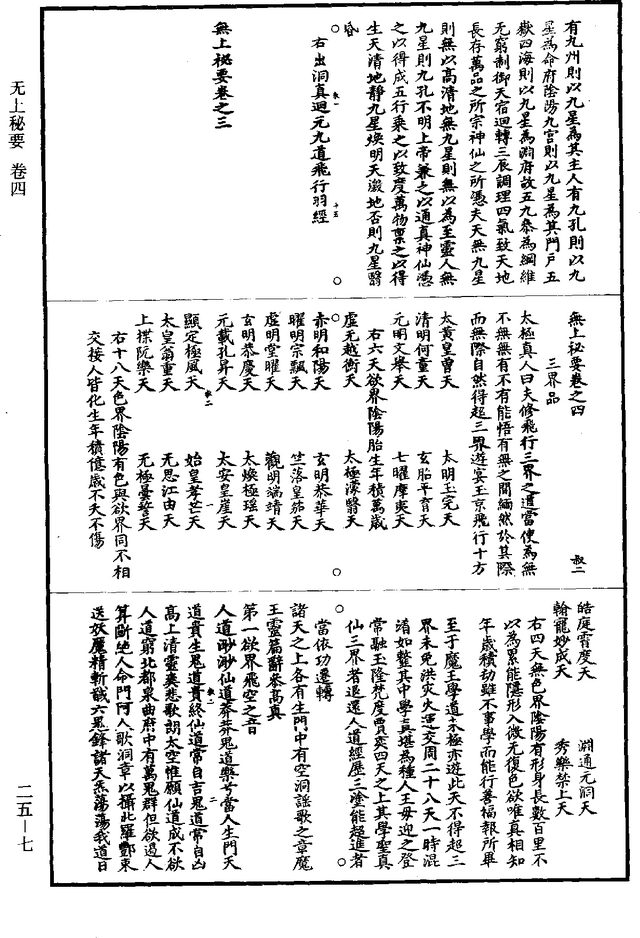 无上秘要 卷四
有九州則以九星為其主人有九孔則以九
星為命府陰陽九宮則以九星為其門戶五
嶽四海則以九星為淵府故五九參為綱維
无窮制御天宿迴轉三辰調理四氣致天地
長存萬品之所宗神仙之所憑夫天無九星
則無以高清地無九星則無以為至靈人無
九星則九孔不明上帝兼之以通真神仙憑
之以得成五行乘之以致度萬物稟之以得
生天清地靜九星煥明天激地否則九星翳
昏
右出洞真迴元九道飛行羽經
無上秘要卷之三
無上秘要卷之四 叔二
三界品
太極真人曰夫修飛行三界之道當使為無
不無無有不有能悟有無之間緬然於其際
而無際自然得超三界遊宴玉京飛行十方
太黃皇曾天 太明玉完天
清明何童天 玄胎平育天
元明文舉天 七曜摩夷天
右六天欲界陰陽胎生年積萬歲
虛无越衡天 太極濛翳天
赤明和陽天 玄明恭華天
曜明宗飄天 竺落皇笳天
虛明堂曜天 觀明端靖天
玄明恭慶天 太煥極瑤天
元載孔昇天 太安皇崖天
顯定極風天 始皇孝芒天
太皇翁重天 无思江由天
上揲阮樂天 无極曇誓天
右十八天色界陰陽有色與欲界同不相
交接人皆化生年積億歲不夭不傷
皓庭霄度天 淵通元洞天
翰寵妙成天 秀樂禁上天
右四天無色界陰陽有形身長數百里不
以為累能隱形入微无復色欲唯真相知
年歲積劫雖不事學而能行善福報所畢
至于魔王學道未極亦遊此天不得超三
界未免洪灾火運交周二十八天一時混
淆如整其中學真堪為種人王母迎之登
常融玉隆梵度賈奕四天之上其學聖真
仙三界者退還人道經歷三塗能超進者
當依功遷轉
諸天之上各有生門中有空洞謠歌之章魔
王靈篇辭參高真
第一欲界飛空之音
人道渺渺仙道莽莽鬼道樂兮當人生門天
道貴生鬼道貴終仙道常自吉鬼道常自凶
高上清靈爽悲歌朗太空惟願仙道成不欲
人道窮北都泉曲府中有萬鬼群但欲遏人
算斷絕人命門阿人歌洞章以攝北羅酆束
送妖魔精斬馘六鬼鋒諸天炁蕩蕩我道日
二五—七